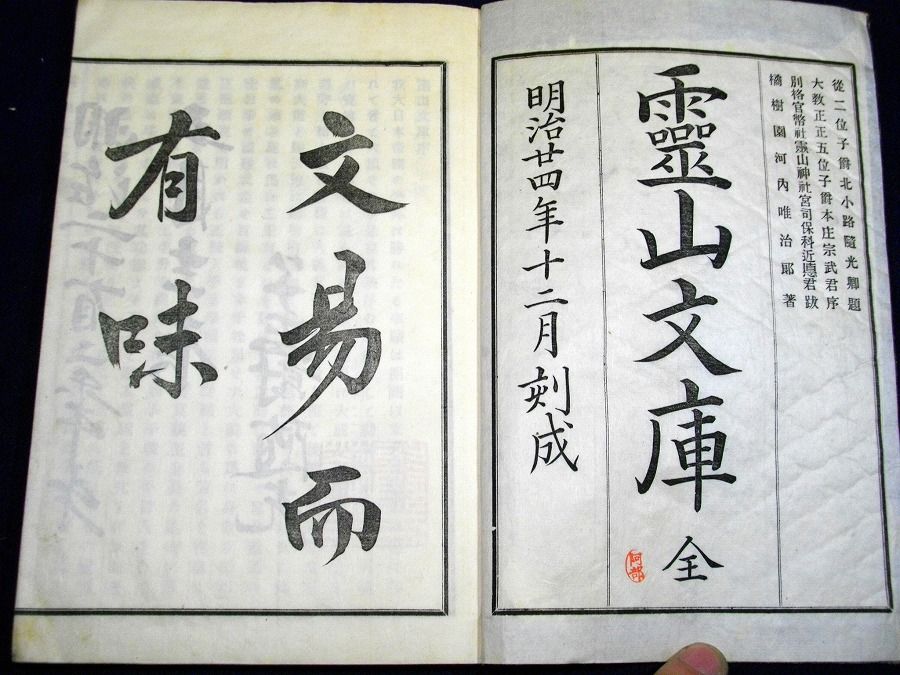 從二位子爵北小路隨光卿題
大教正正五位子爵本庄宗武君序
別格官幣社靈山神社宮司保科近悳君跋
橘樹園河內唯治郎著
靈山文庫 全
阿部
明治廿四年十二月刻成
文易而
有味